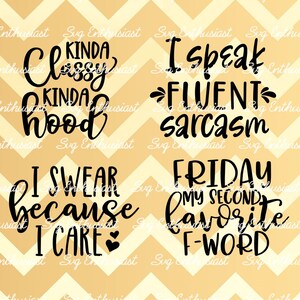 KINDA
Classy
KINDA
hood
I speak
FLUENT
sarcasm
I SWEAR
because
I CARE
FRIDAY
MY SECOND
favorite
F-WORD
Svg Enthusiast